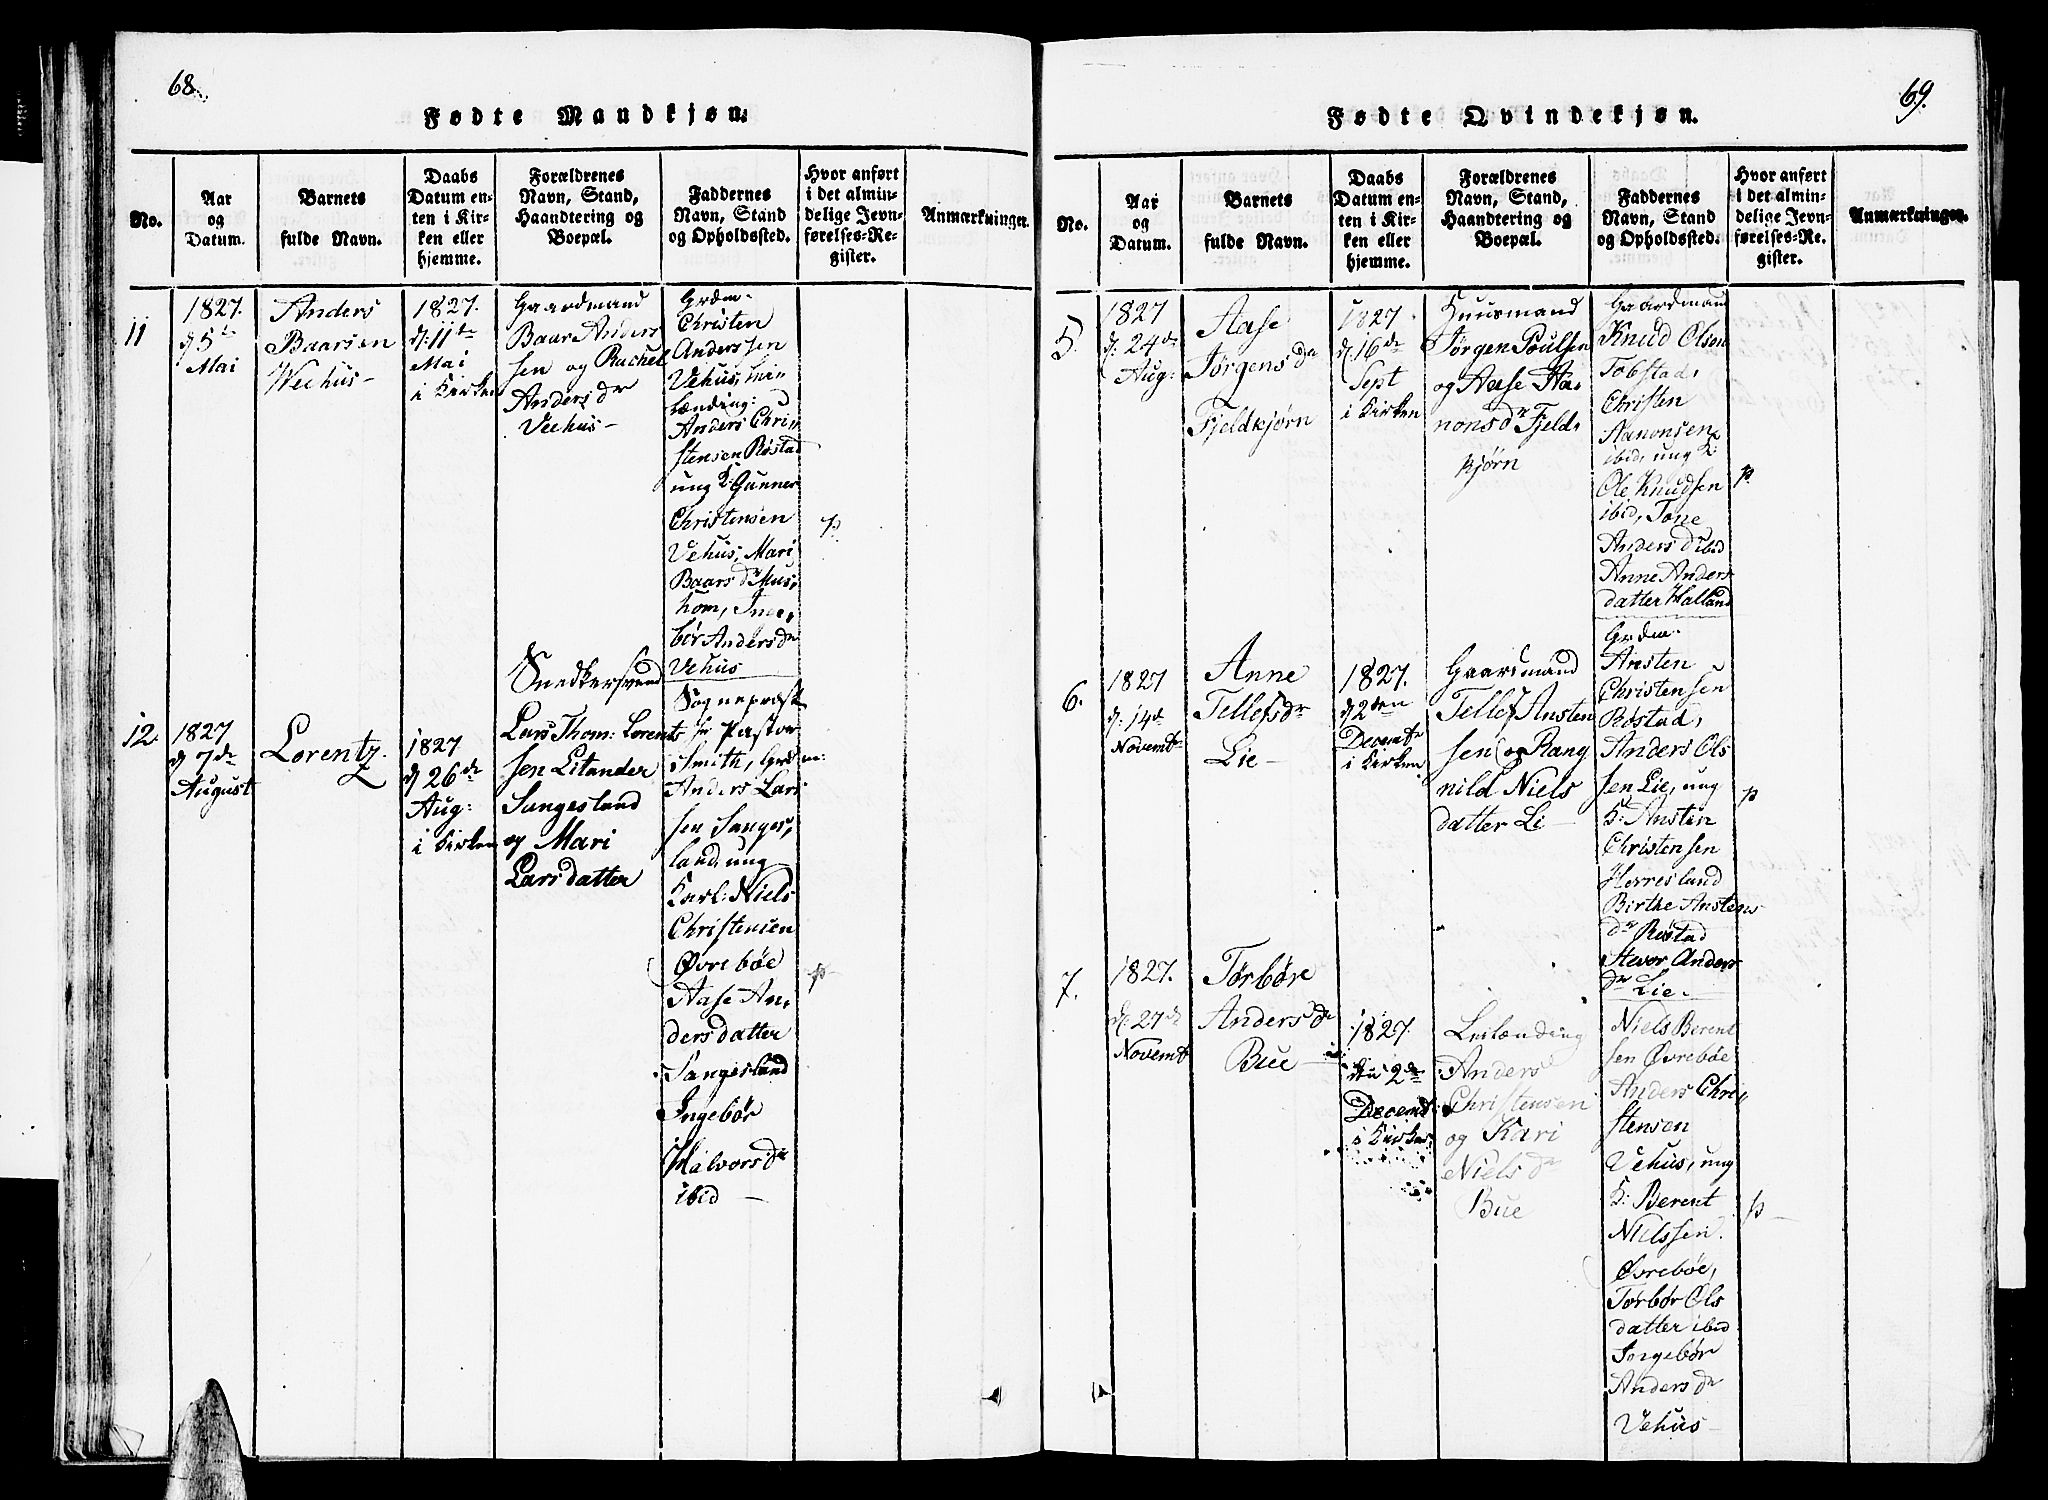 68.
Fødte Mandkjøn.
No.
Aar
og
Datum.
Barnets
fulde Navn.
Daabs
Datum en-
ten i Kir-
ken eller
hjemme.
Forældrenes
Navn, Stand,
Haandtering og
Boepæl.
Faddernes
Navn, Stand
og Opholdssted.
Hvor anført
i det almin-
delige Jevn-
førelses-Re-
gister.
Anmærkninger.
11
1827.
d 5te
Mai
Anders
Baarsen
Weehus-
1827.
d: 11te
Mai
i Kirken
Gaardmand
Baar Anders
sen og Rachel
Anders dr
Veehus-
Grdm.
Christen
Anderssen
Vehus, in-
lænding:
Anders Chri-
stensen Røstad
ung K: Gunner
Christensen
Vehus, Mari
Baars dr Mus-
hom, Inge-
bør Anders dr
Vehus
p
12.
1827
d 7de
August
Lorentz
1827
d 26de
Aug:
i Kirken
Snedkersvend
Lars Thom: Lorents
sen Litander
Sangesland
og Mari
Larsdatter
Sognepræst
hr Pastor
Smith, Grdm:
Anders Lar
sen Sanges-
land, ung
Karl: Niels
Christensen
Øvrebøe
Aase An-
dersdatter
Sangesland
Ingebør
Halvors dr
ibid -
p
69.
Fødte Qvindekjøn.
No.
Aar
og
Datum.
Barnets
fulde Navn.
Daabs
Datum en-
ten i Kir-
ken eller
hjemme.
Forældrenes
Navn, Stand,
Haandtering og
Boepæl.
Faddernes
Navn, Stand
og Opholdssted.
Hvor anført
i det almin-
delige Jevn-
førelses-Re-
gister.
Anmærkninger.
5.
1827
d: 24de
Aug:
Aase
Jørgens dr
Fjeldkjørn
1827
d. 16de
Sept
i Kirken
Huusmand
Jørgen Poulsen
og Aase Aa-
nonsdr Fjeld-
kjørn
Gaardmand
Knud Olsen
Tobstad,
Christen
Aanonsen
ibid, ung K:
Ole Knudsen
ibid, Tone
Anders dr ibid
Anne Anders
datter Halland
p
6.
1827
d: 14de
Novembr
Anne
Tellefsdr
Lie -
1827.
d 2den
Decembr
i Kirken
Gaardmand
Tellef Ansten
sen og Rang
nild Niels
datter Li -
Grdm.
Ansten
Christensen
Røstad,
Anders Ols
sen Lie, ung
K: Ansten
Christensen
Herresland
Birthe Anstens
dr Røstad
Stevor Anders
dr Lie.
p
7.
1827.
d: 27de
Novembr
Tørbøre
Anders dr
Bue -
1827.
den 2de
Decembr
i Kirken
Leilænding
Anders
Christensen
og Kari
Niels dr
Bue
Niels Berent
sen Øvrebøe
Anders Chri-
stensen
Vehus, ung
K: Berent
Nielssen
Øvrebøe,
Tørbør Ols
datter ibid
Ingebør
Anders dr
Vehus -
p -